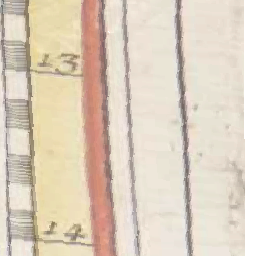 13
14